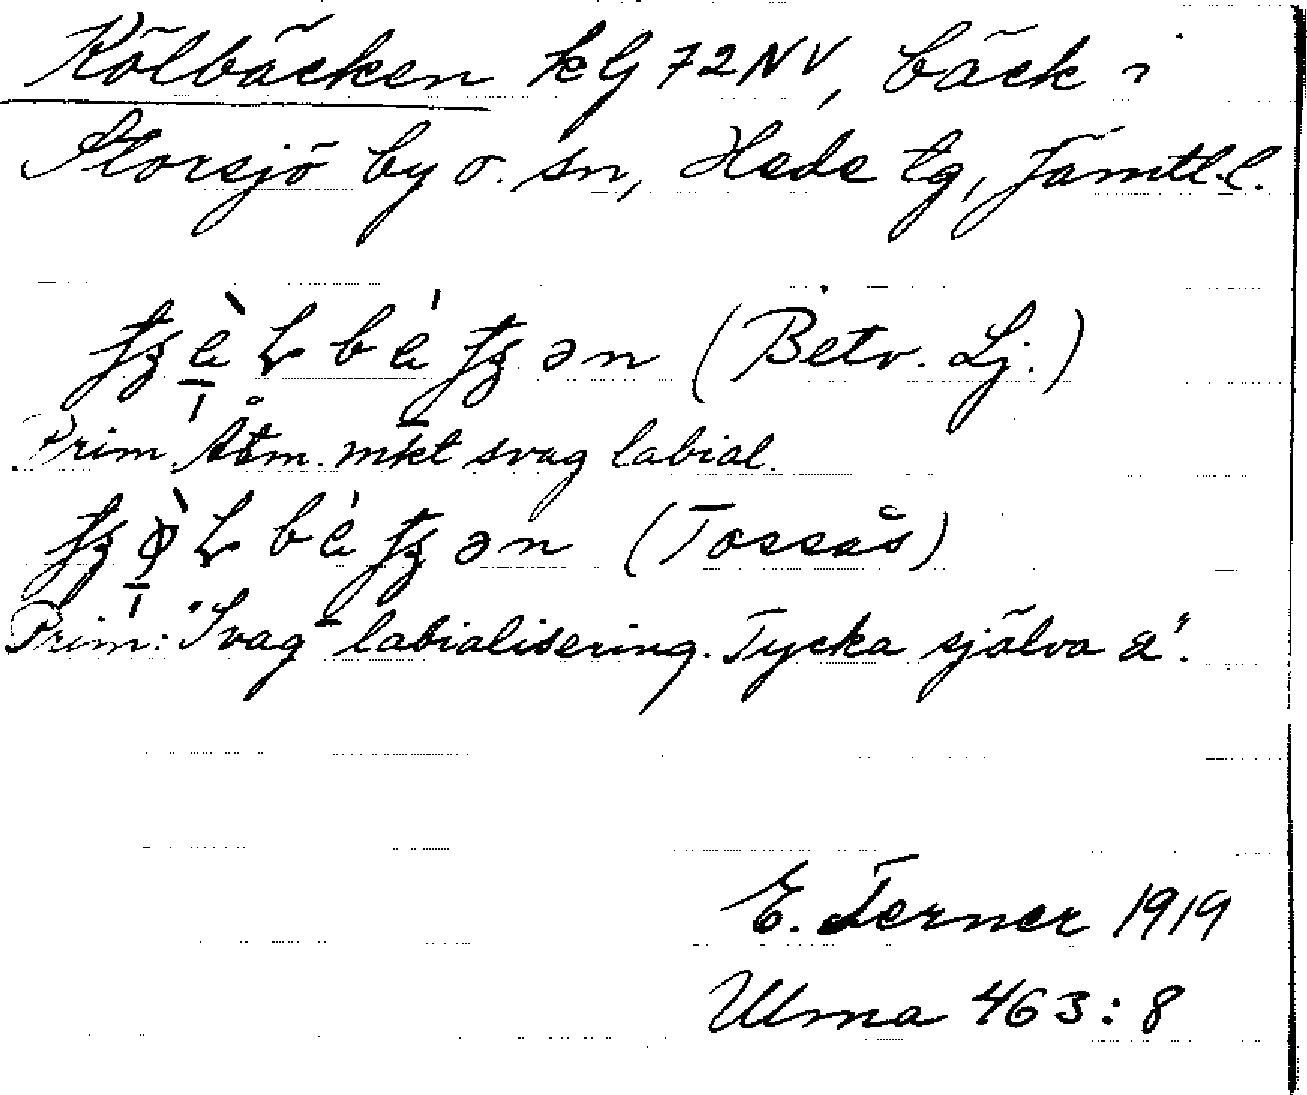 Kölbäcken kG 72 NV, bäck i
Storsjö by o. sn, Hede tg, Jämtl.l.
(Betv. Lj.)
Prim. Åtm. mkt svag labial.
(Tossås)
Prim: "Svag labialisering. Tycka själva a".
E. Terner 1919
Ulma 463:8